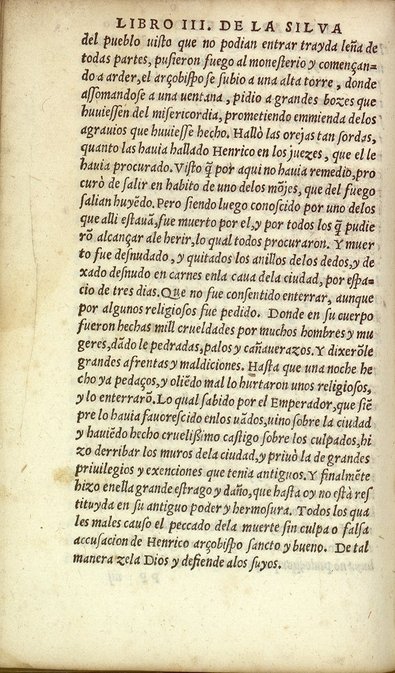 LIBRO III. DE LA SILVA
del pueblo uisto que no podian entrar trayda leña de
todas partes, pusieron fuego al monesterio y començan-
do a arder, el arçobispo se subio a una alta torre, donde
assomandose a una uentana, pidio a grandes bozes que
huuiessen del misericordia, prometiendo emmienda delos
agrauios que huuiesse hecho. Hallò las orejas tan sordas,
quanto las hauia hallado Henrico en los juezes, que el le
hauia procurado. Visto q̃ por aqui no hauia remedio, pro
curò de salir en habito de uno delos mõjes, que del fuego
salian huyẽdo. Pero siendo luego conoscido por uno delos
que alli estauã, fue muerto por el, y por todos los q̃ pudie
rõ alcançar ale herir, lo qual todos procuraron. Y muer
to fue desnudado, y quitados los anillos delos dedos, y de
xado desnudo en carnes enla caua dela ciudad, por espa-
cio de tres dias. Que no fue consentido enterrar, aunque
por algunos religiosos fue pedido. Donde en su cuerpo
fueron hechas mill crueldades por muchos hombres y mu
geres, dãdo le pedradas, palos y cañauerazos. Y dixerõle
grandes afrentas y maldiciones. Hasta que una noche he
cho ya pedaços, y oliẽdo mal lo hurtaron unos religiosos,
y lo enterrarõ. Lo qual sabido por el Emperador, que siẽ
pre lo hauia fauorescido enlos uãdos, uino sobre la ciudad
y hauiẽdo hecho cruelissimo castigo sobre los culpados, hi
zo derribar los muros dela ciudad, y priuò la de grandes
priuilegios y exenciones que tenia antiguos. Y finalmẽte
hizo enella grande estrago y daño, que hasta oy no està res
tituyda en su antiguo poder y hermosura. Todos los qua
les males causo el peccado dela muerte sin culpa o falsa
accusacion de Henrico arçobispo sancto y bueno. De tal
manera zela Dios y defiende alos suyos.